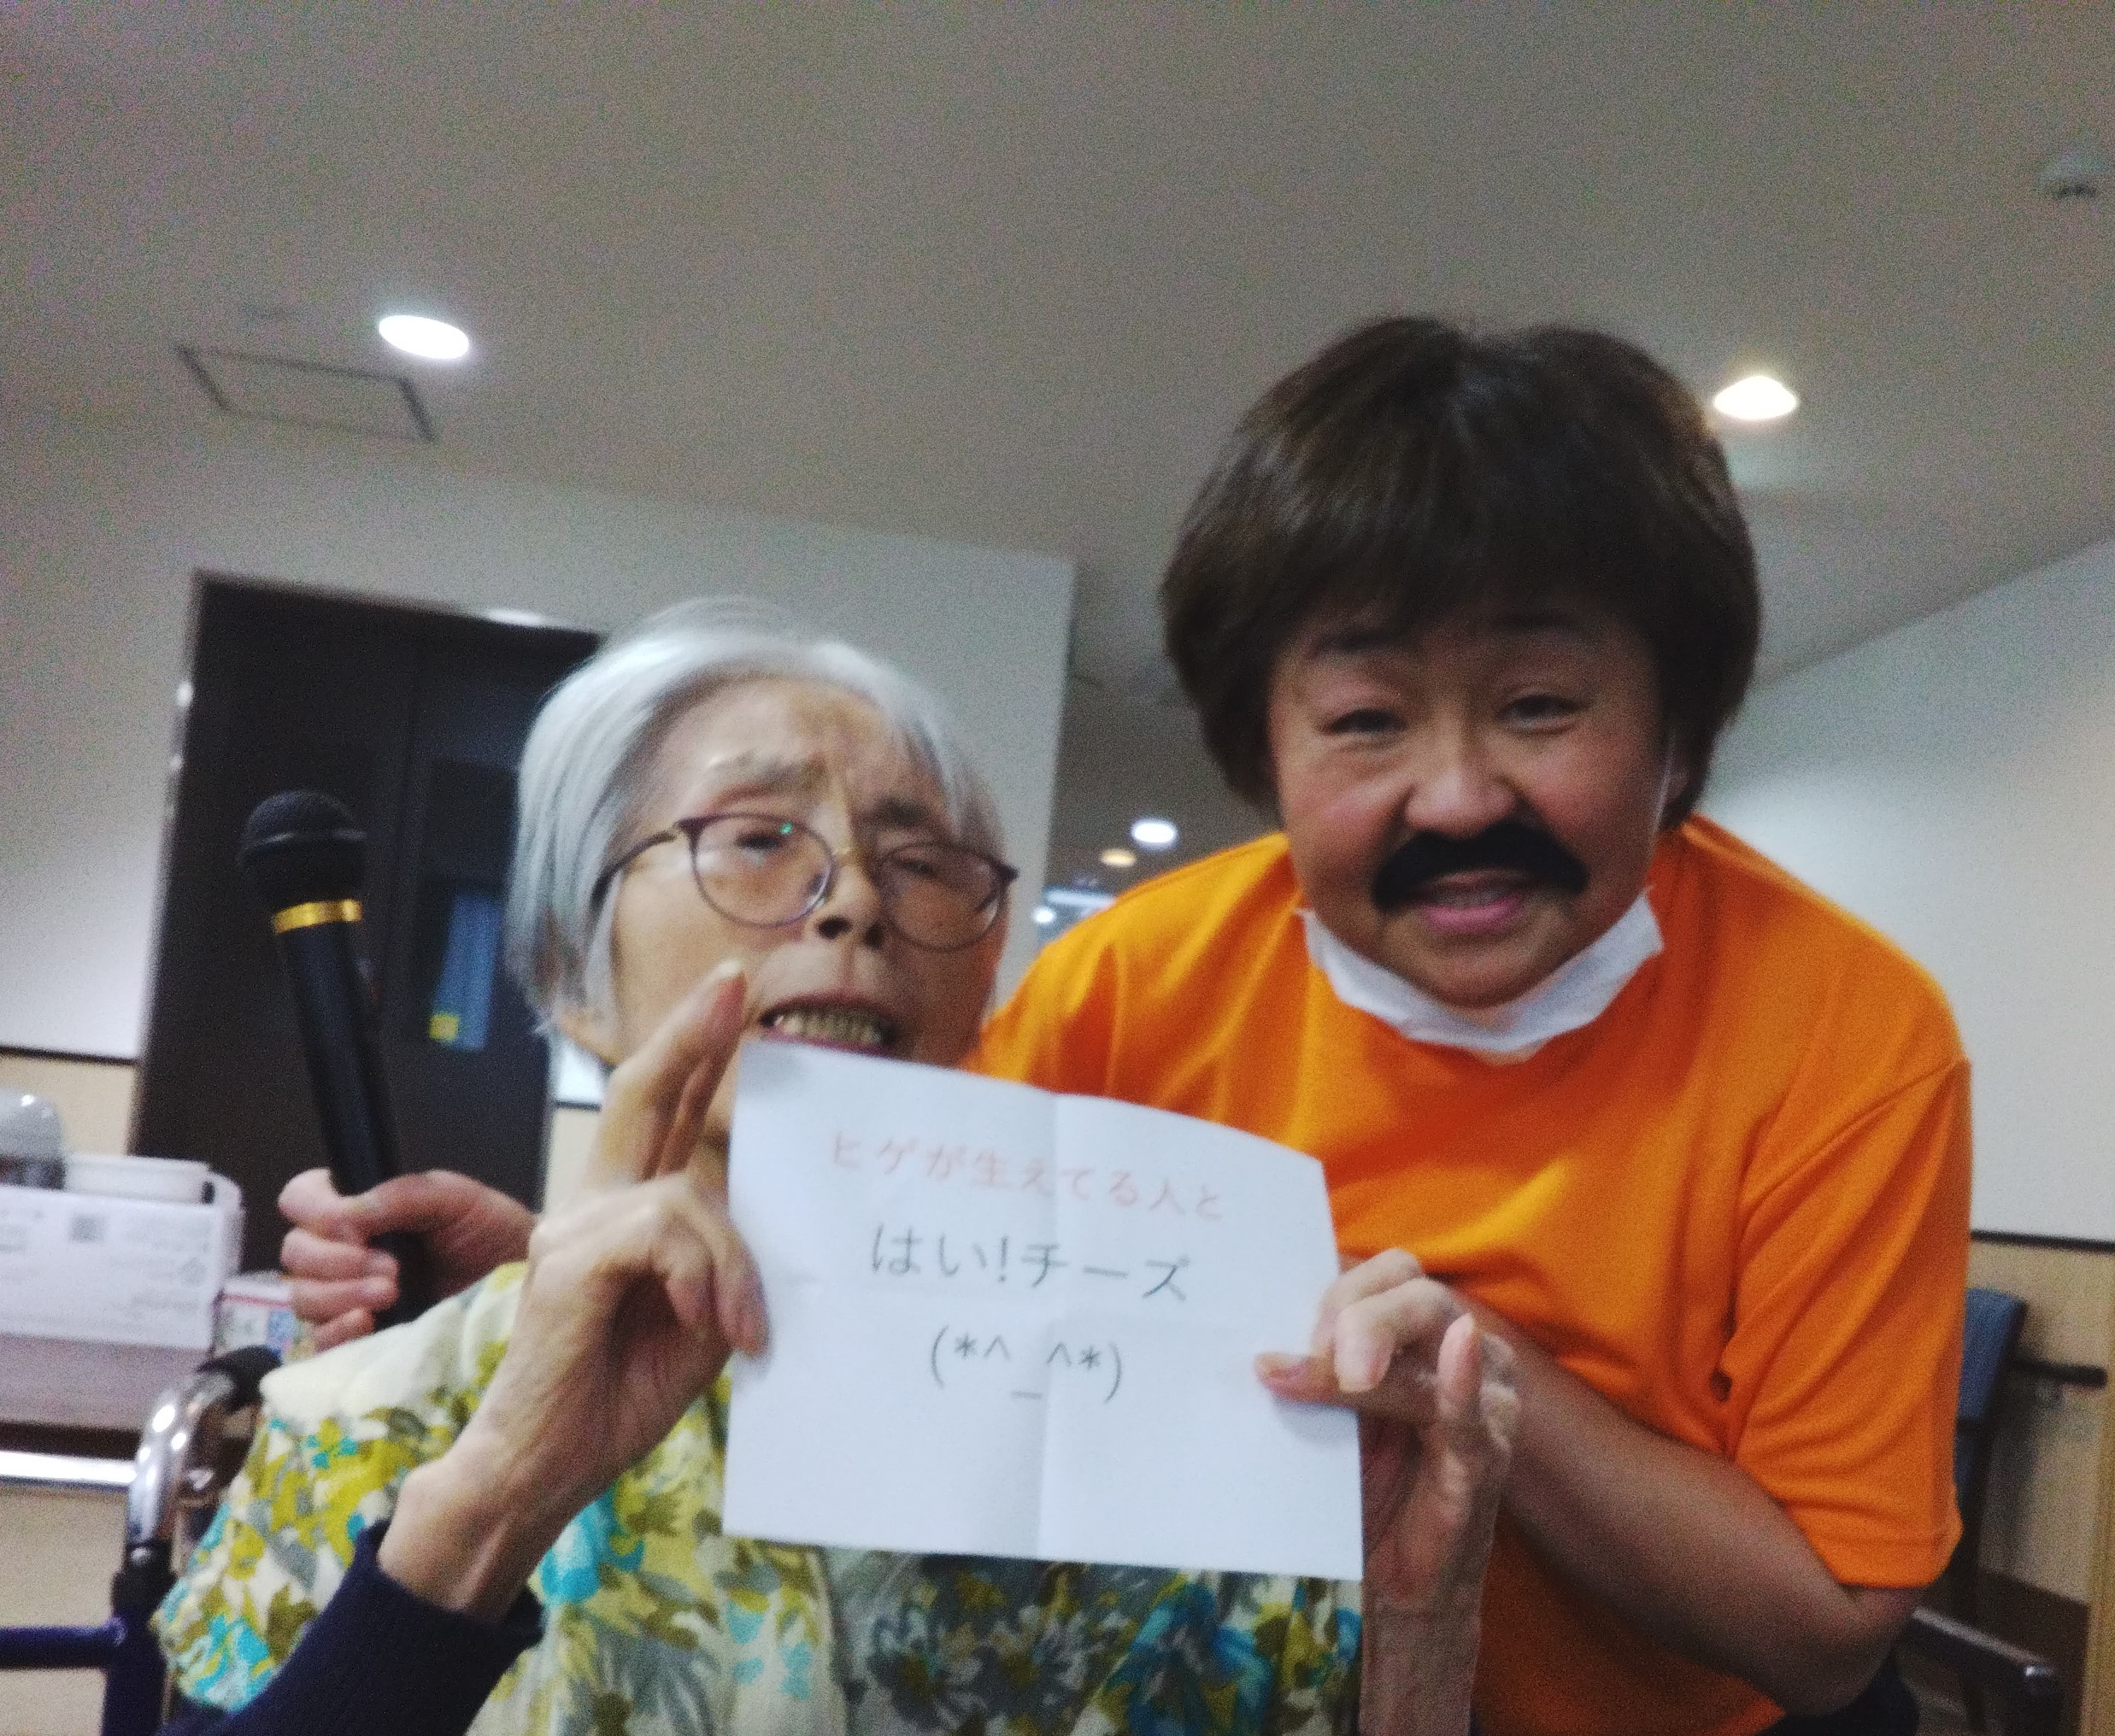 ヒゲが生えてる人と
はい!チーズ
(*^_^*)